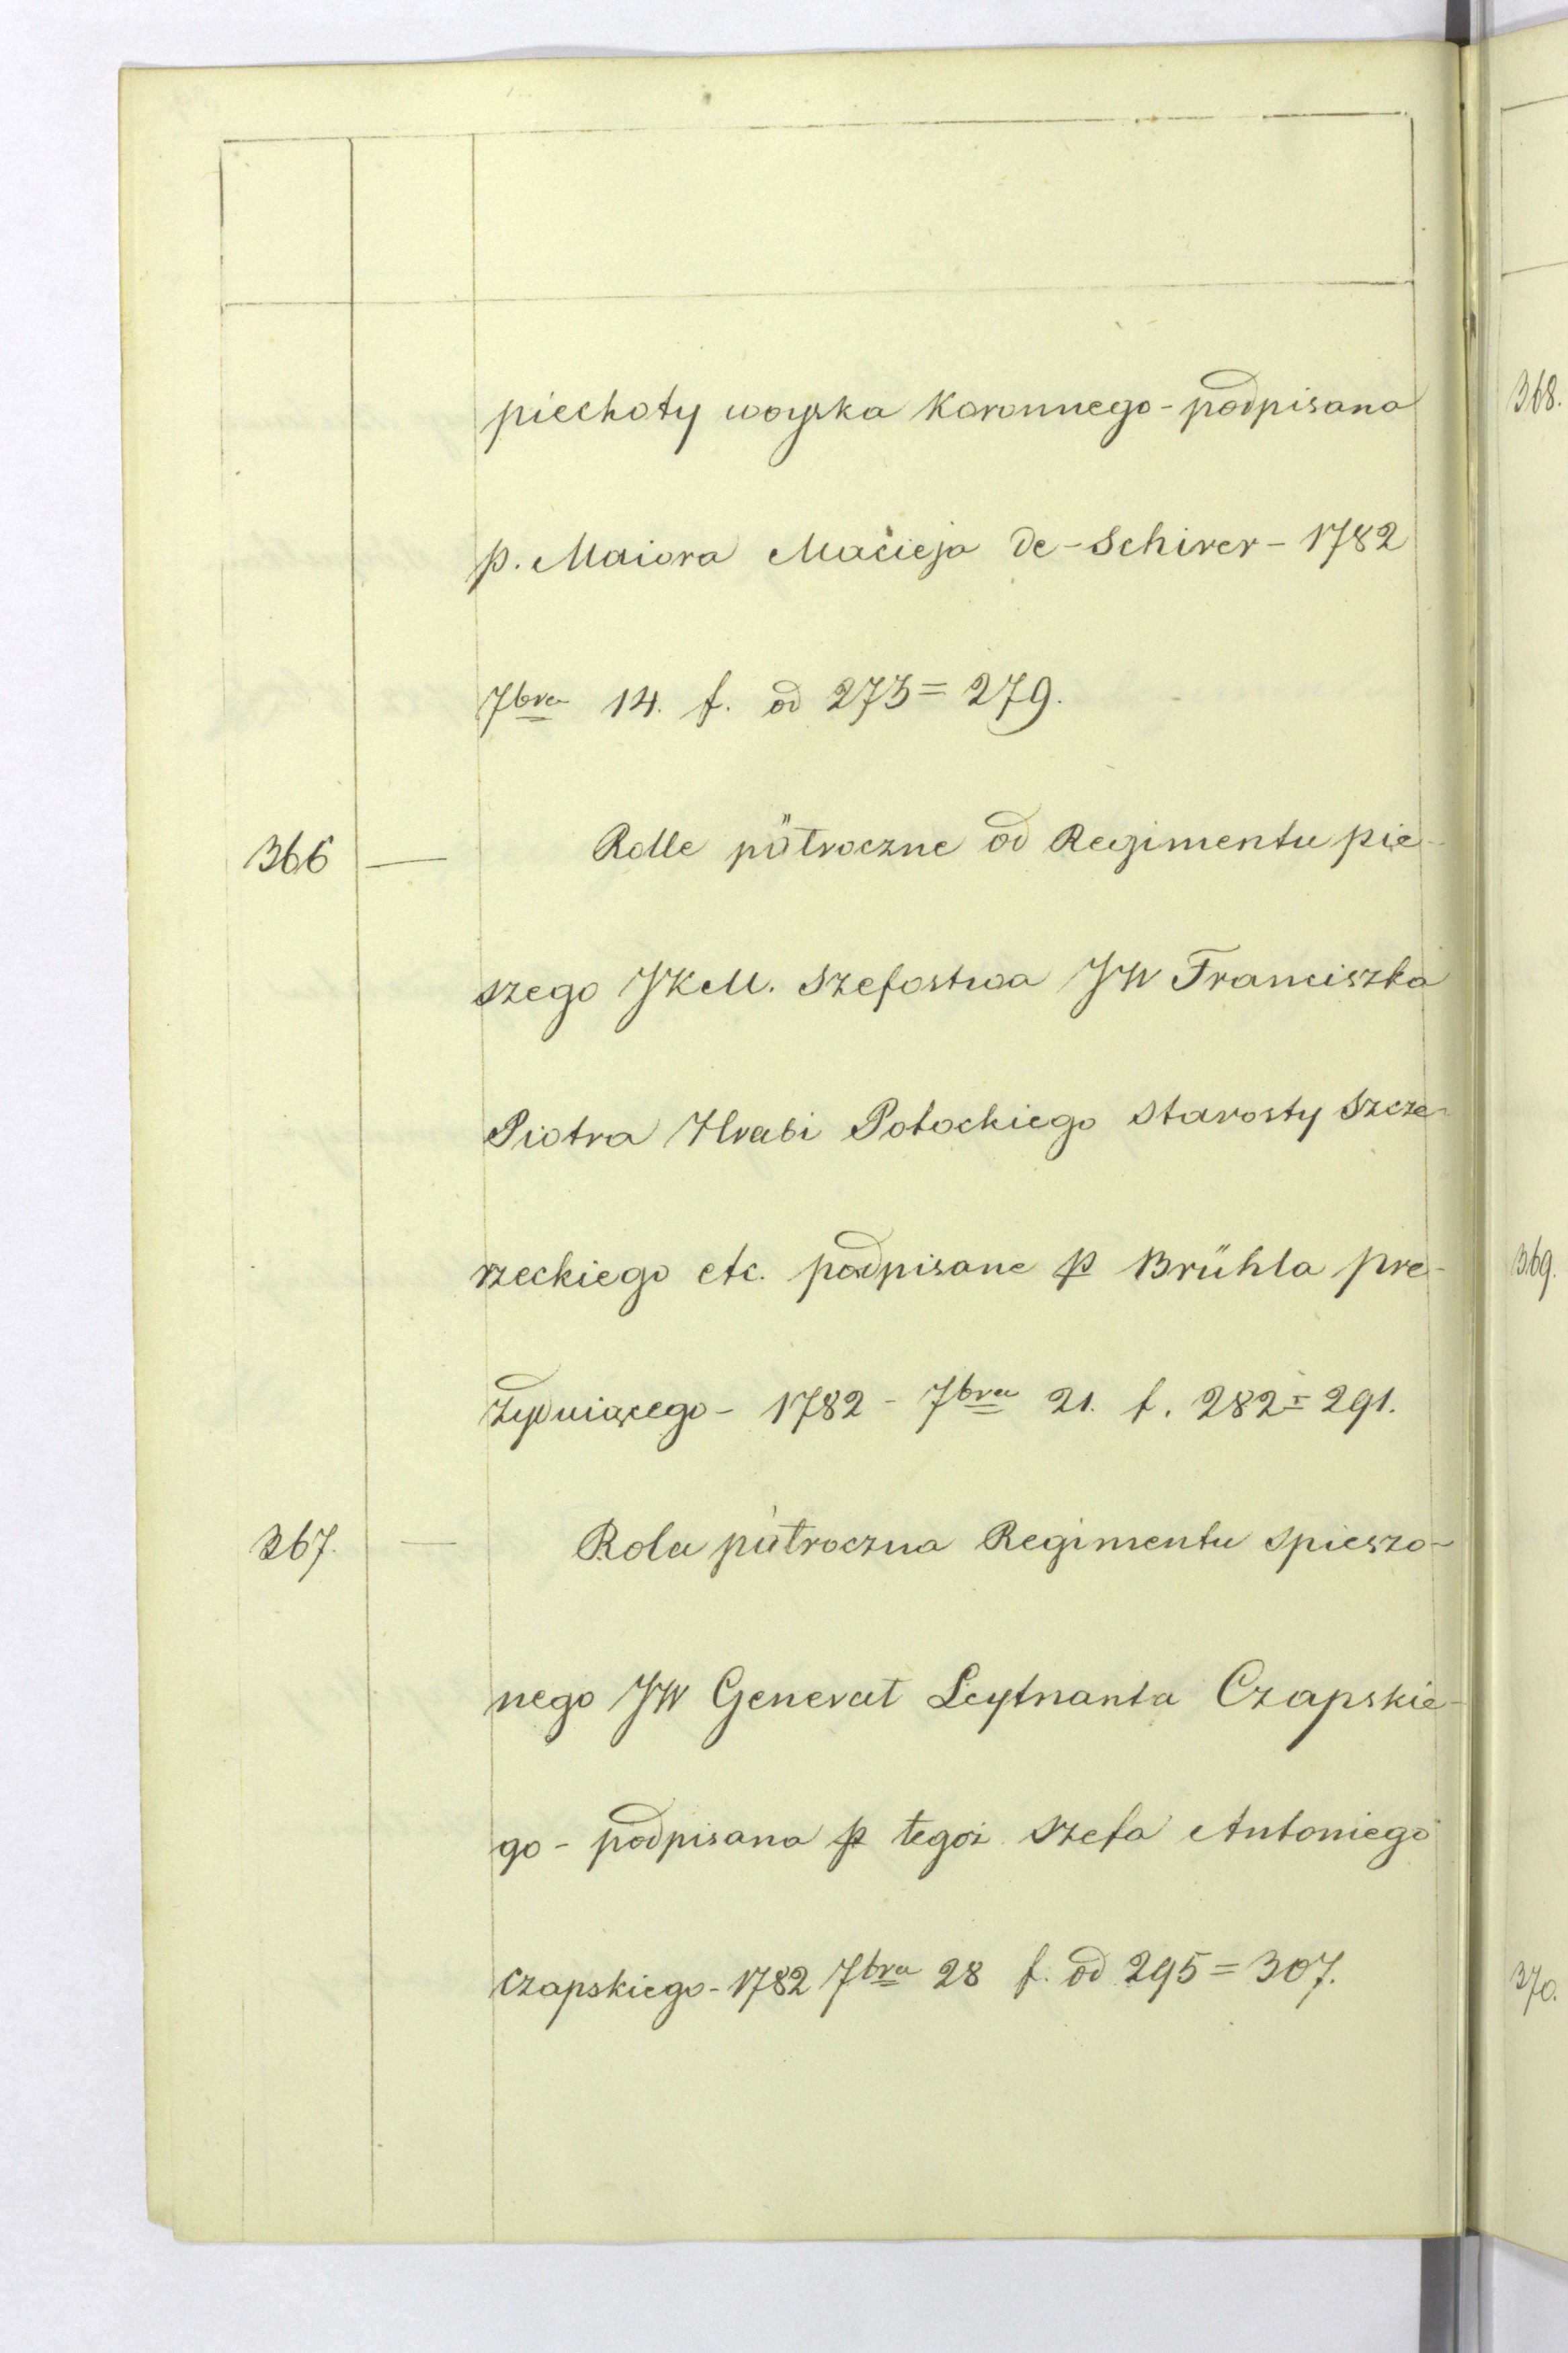 piechoty woyska Koronnego - podpisana
p. Maiora Macieja de - Schirer - 1782
7bra 14. f. od 273 = 279.
366 — Rolle półroczne od Regimentu pie-
szego JKM. Szefostwa JW Franciszka
Piotra Hrabi Potockiego Starosty Szcze-
rzeckiego etc. podpisane p Brühla pre-
zyduiącego - 1782 - 7bra 21. f. 282 = 291.
367. — Rola pułroczna Regimentu spieszo-
nego JW Generał Leytnanta Czapskie-
go - podpisana p tegoż Szefa Antoniego
Czapskiego - 1782 7bra 28 f. od 295 = 307.
368.
369.
370.